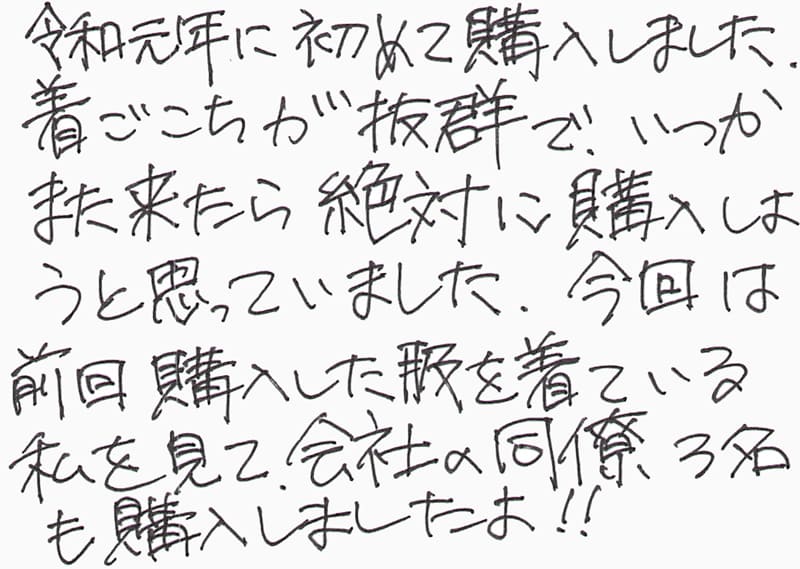 令和元年に初めて購入しました.
着ごこちが抜群で、いつか
また来たら絶対に購入しよ
うと思っていました. 今回は
前回購入した服を着ている
私を見て、会社の同僚3名
も購入しましたよ!!